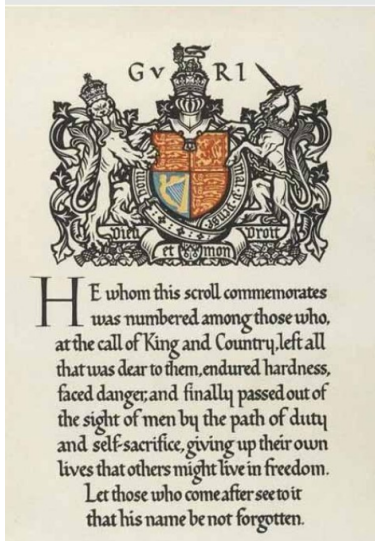 G v R I
Honi soit qui mal y pense
Dieu et mon Droit
HE whom this scroll commemorates
was numbered among those who,
at the call of King and Country, left all
that was dear to them, endured hardness,
faced danger, and finally passed out of
the sight of men by the path of duty
and self-sacrifice, giving up their own
lives that others might live in freedom.
Let those who come after see to it
that his name be not forgotten.